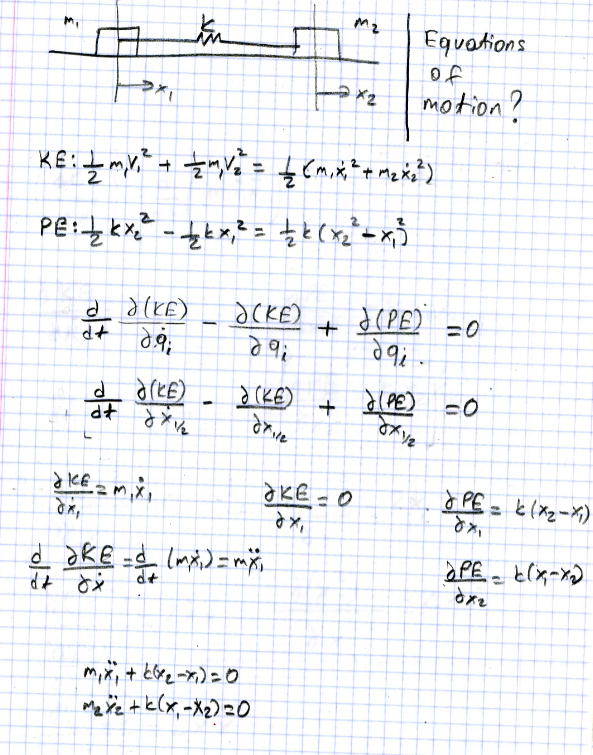 m₁ k m₂
x₁ x₂
Equations
of
motion?
KE: 1/2 m₁V₁² + 1/2 m₁V₂² = 1/2 (m₁ẋ₁² + m₂ẋ₂²)
PE: 1/2 kx₂² - 1/2 kx₁² = 1/2 k(x₂² - x₁²)
d/dt ∂(KE)/∂q̇ᵢ - ∂(KE)/∂qᵢ + ∂(PE)/∂qᵢ = 0
d/dt ∂(KE)/∂ẋ₁/₂ - ∂(KE)/∂x₁/₂ + ∂(PE)/∂x₁/₂ = 0
∂KE/∂ẋ₁ = m₁ẋ₁ ∂KE/∂x₁ = 0 ∂PE/∂x₁ = k(x₂-x₁)
d/dt ∂KE/∂ẋ = d/dt (mẋ₁) = mẍ₁ ∂PE/∂x₂ = k(x₁-x₂)
m₁ẍ₁ + k(x₂-x₁) = 0
m₂ẍ₂ + k(x₁-x₂) = 0